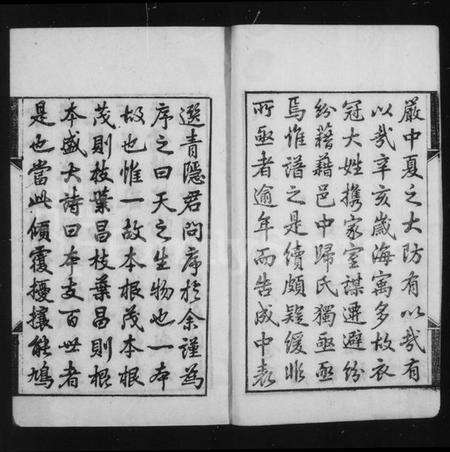 嚴中夏之大防有以哉有
以哉辛亥歲海寓多故衣
冠大姓攜家室謀遷避紛
紛藉藉邑中歸氏獨亟亟
焉惟譜之是續頗疑緩非
所亟者逾年而告成中表
選青隱君問序於余謹為
序之曰天之生物也一本
故也惟一故本根茂本根
茂則枝葉昌枝葉昌則根
本盛大詩曰本支百世者
是也當此傾覆擾攘能鳩